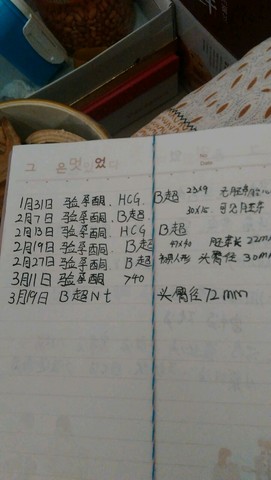 그 은 멋있었
1月31日 验孕酮. HCG. B超 23×9
2月7日 验孕酮. B超. 30×15
2月13日 验孕酮. HCG B超
2月19日 验孕酮. B超 47×40 胚芽长 22mm
2月27日 验孕酮. B超 头臀径 30mm
3月11日 验孕酮 >40
3月19日 B超Nt 头臀径72mm